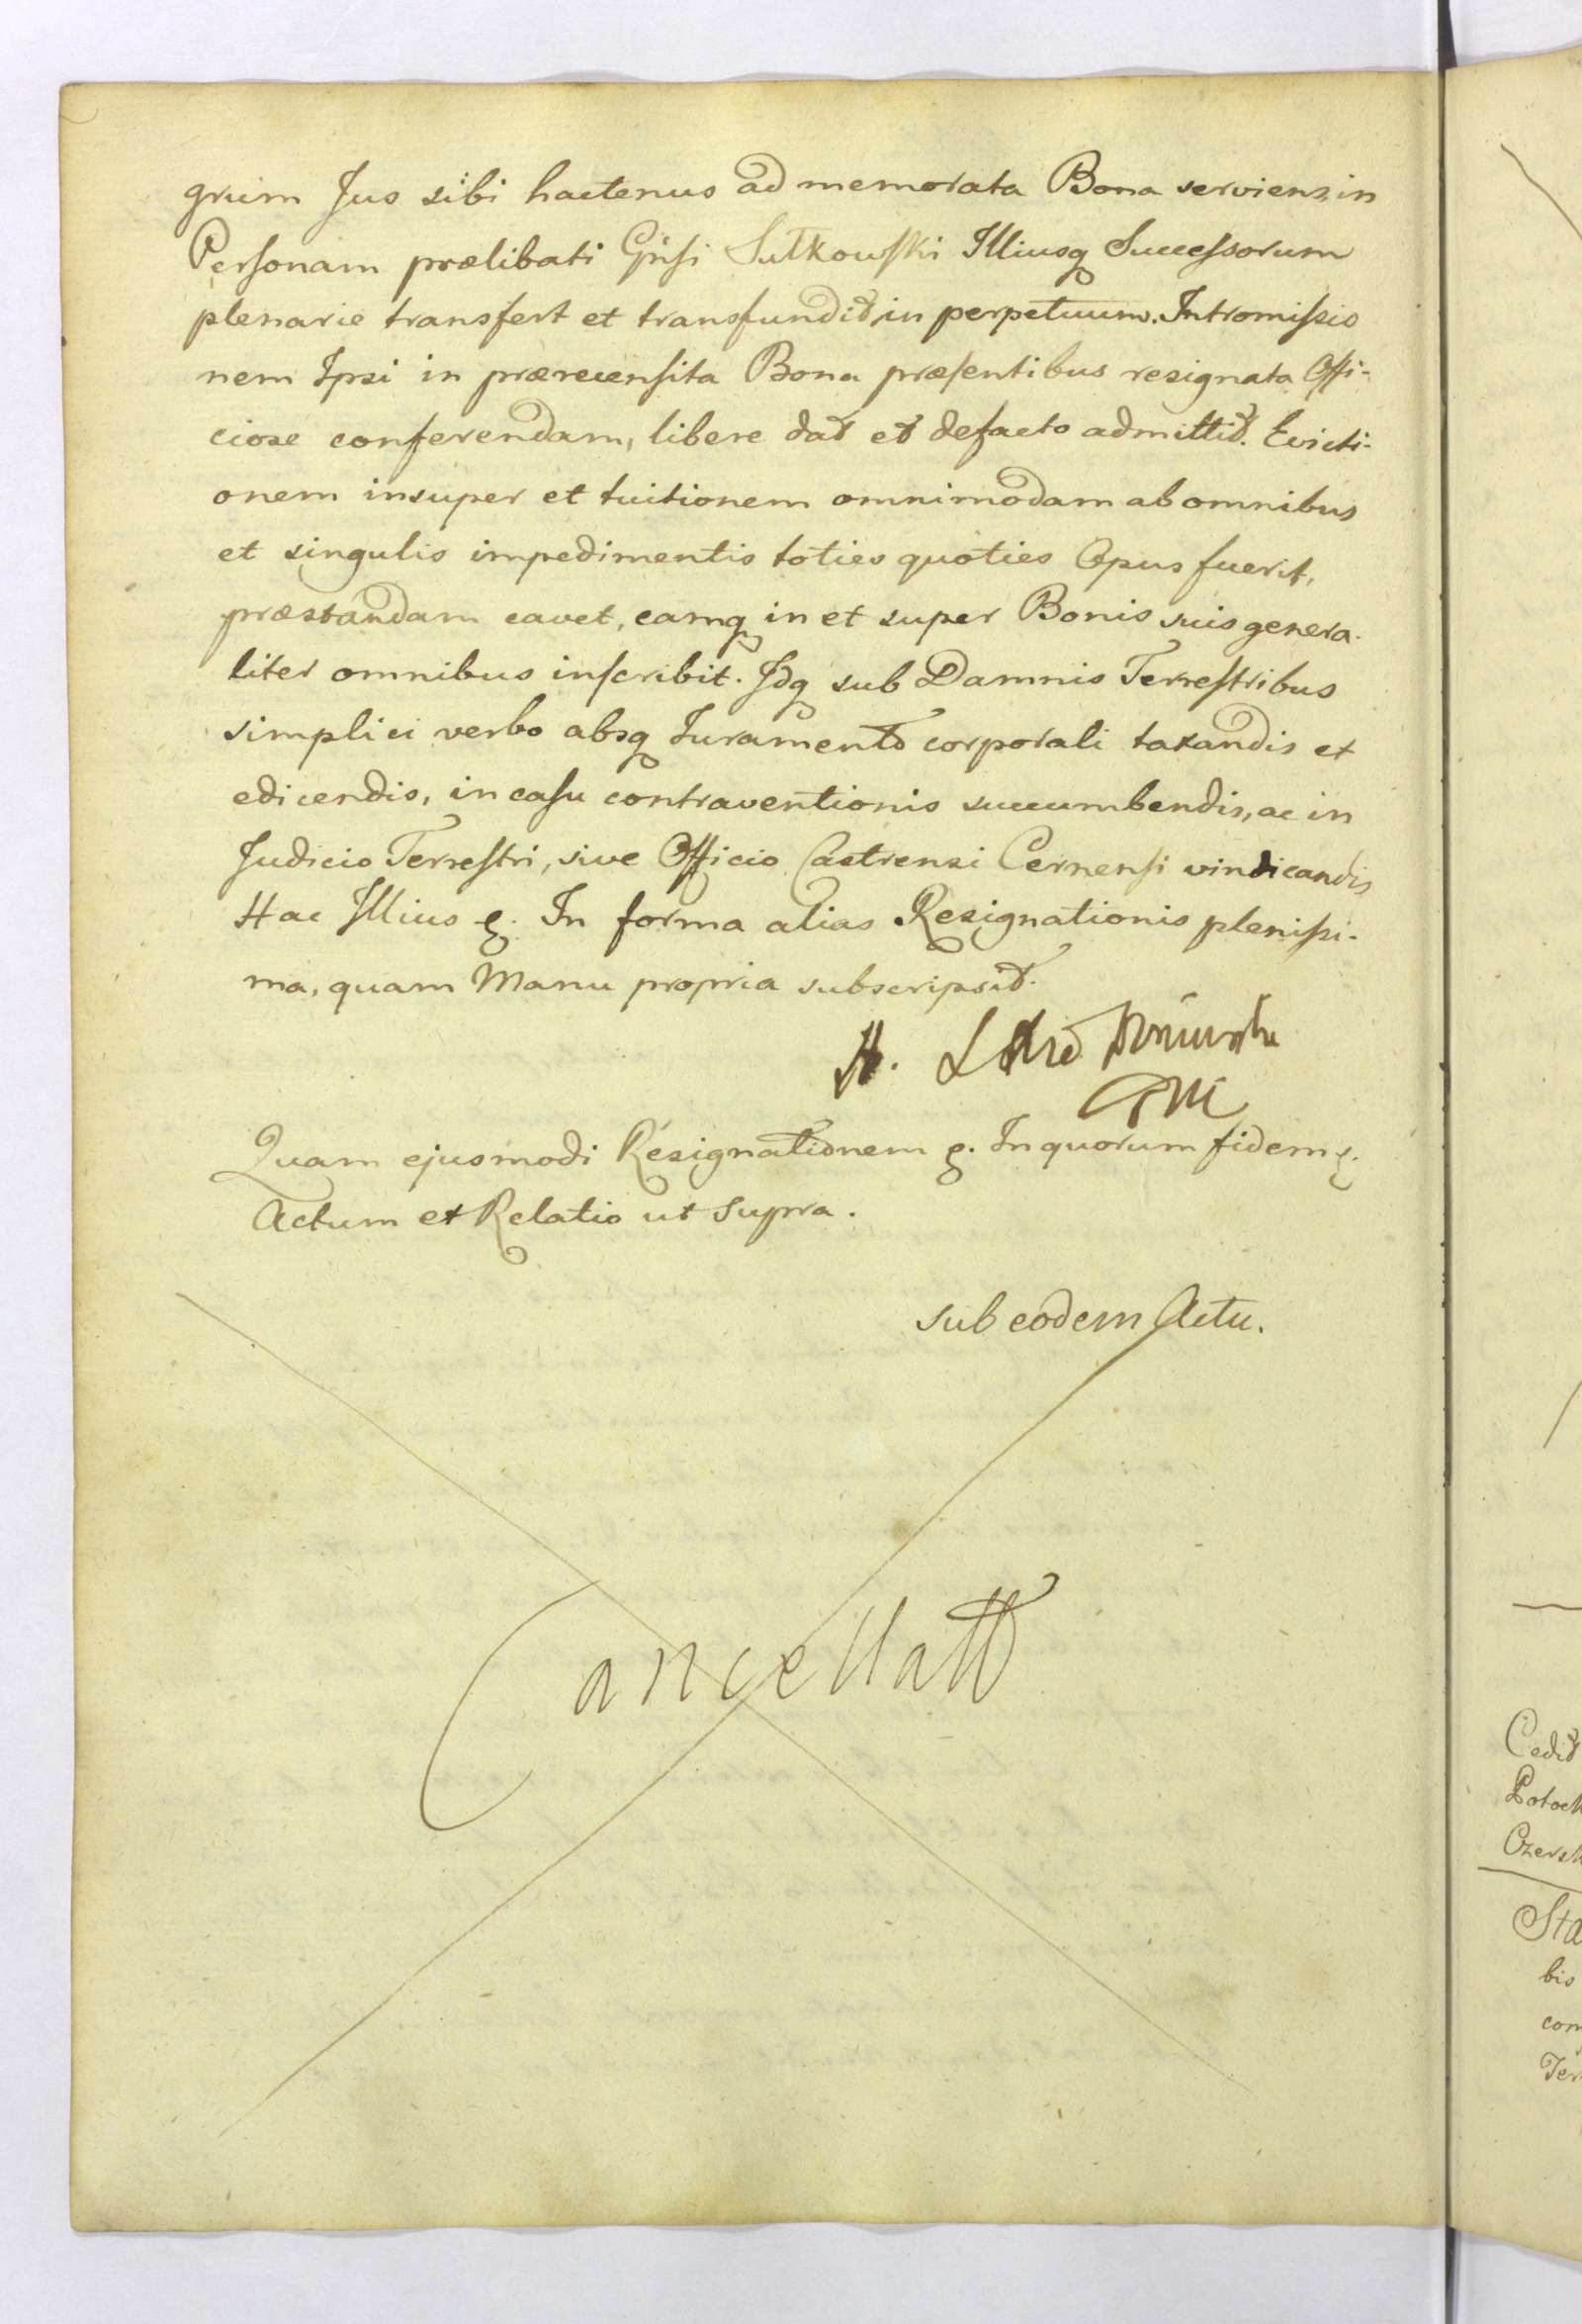 grum Jus sibi hactenus ad memorata Bona serviens, in
Personam prælibati Gnsi Sułkowski Illiusq Successorum
plenarie transfert et transfundit, in perpetuum. Intromissio
nem Ipsi in prærecensita Bona præsentibus resignata Offi-
ciose conferendam, libere dat et defacto admittit. Evicti-
onem insuper et tuitionem omnimodam ab omnibus
et singulis impedimentis toties quoties Opus fuerit,
præstandam cavet, eamq in et super Bonis suis genera-
liter omnibus inscribit. Idq sub Damnis Terrestribus
simplici verbo absq Juramento corporali taxandis et
edicendis, in casu contraventionis succumbendis, ac in
Judicio Terrestri, sive Officio Castrensi Cernensi vindicandis
Hac Illius e. In forma alias Resignationis plenissi-
ma, quam Manu propria subscripsit.
Quam ejusmodi Resignationem e. In quorum fidem e.
Actum et Relatio ut supra.
sub eodem Actu.
Cancellatt
Cedit
Czersk
Sta
bis
com
Ter